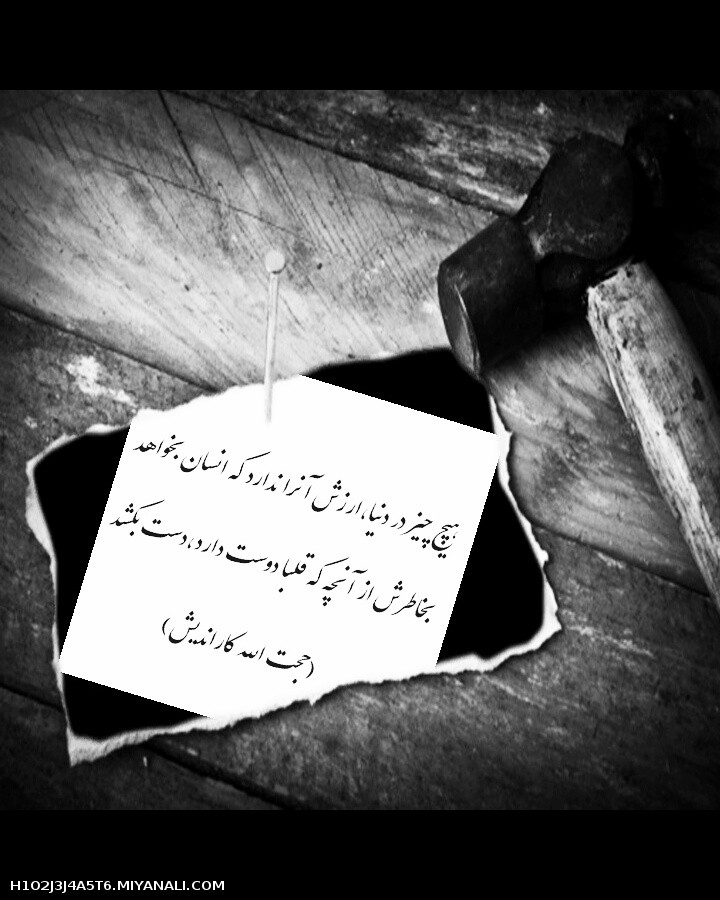 هیچ چیز در دنیا، ارزش آنرا ندارد که انسان بخواهد
بخاطرش از آنچه که قلبا دوست دارد، دست بکشد
(حجت الله کاراندیش)
H1O2J3J4A5T6.MIYANALI.COM